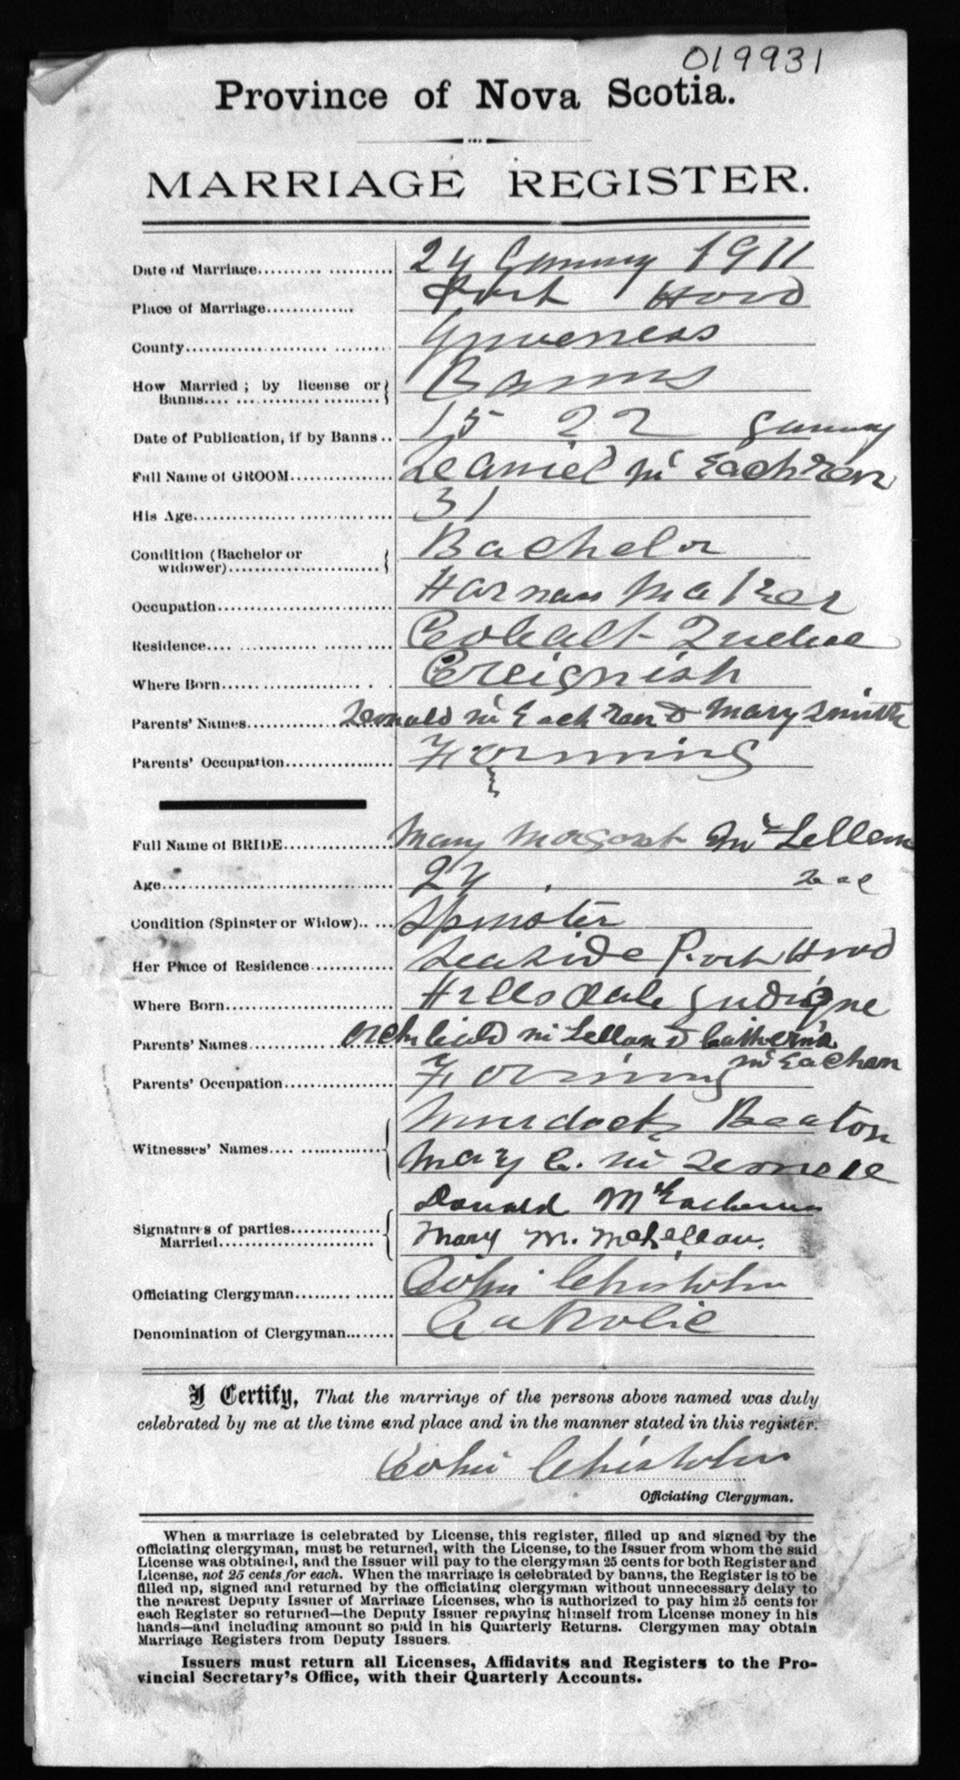 019931
Province of Nova Scotia.
MARRIAGE REGISTER.
Date of Marriage.......... 24 January 1911
Place of Marriage.......... Port Hood
County.......... Inverness
How Married; by license or Banns.......... Banns
Date of Publication, if by Banns.. 15 22 January
Full Name of GROOM.......... Daniel Mc Eachren
His Age.......... 31
Condition (Bachelor or widower).......... Bachelor
Occupation.......... Harnass Maker
Residence.......... Cobalt Quebec
Where Born.......... Creignish
Parents' Names.......... Donald Mc Eachren & Mary Smith
Parents' Occupation.......... Farming
Full Name of BRIDE.......... Mary Margaret Mc Lellan
Age.......... 24
Condition (Spinster or Widow).. ... Spinster
Her Place of Residence.......... Seaside Port Hood
Where Born.......... Hillsdale Judique
Parents' Names.......... Archibald Mc Lellan & Catherine
Mc Eachen
Parents' Occupation.......... Farming
Witnesses' Names.......... Murdock Beaton
Mary C. Mc
Signatures of parties Married.......... Donald McEachern
Mary M. McLellan.
Officiating Clergyman.......... John Chisholm
Denomination of Clergyman.......... Catholic
I Certify, That the marriage of the persons above named was duly
celebrated by me at the time and place and in the manner stated in this register.
John Chisholm
Officiating Clergyman.
When a marriage is celebrated by License, this register, filled up and signed by the
officiating clergyman, must be returned, with the License, to the Issuer from whom the said
License was obtained, and the Issuer will pay to the clergyman 25 cents for both Register and
License, not 25 cents for each. When the marriage is celebrated by banns, the Register is to be
filled up, signed and returned by the officiating clergyman without unnecessary delay to
the nearest Deputy Issuer of Marriage Licenses, who is authorized to pay him 25 cents for
each Register so returned—the Deputy Issuer repaying himself from License money in his
hands—and including amount so paid in his Quarterly Returns. Clergymen may obtain
Marriage Registers from Deputy Issuers.
Issuers must return all Licenses, Affidavits and Registers to the Pro-
vincial Secretary's Office, with their Quarterly Accounts.